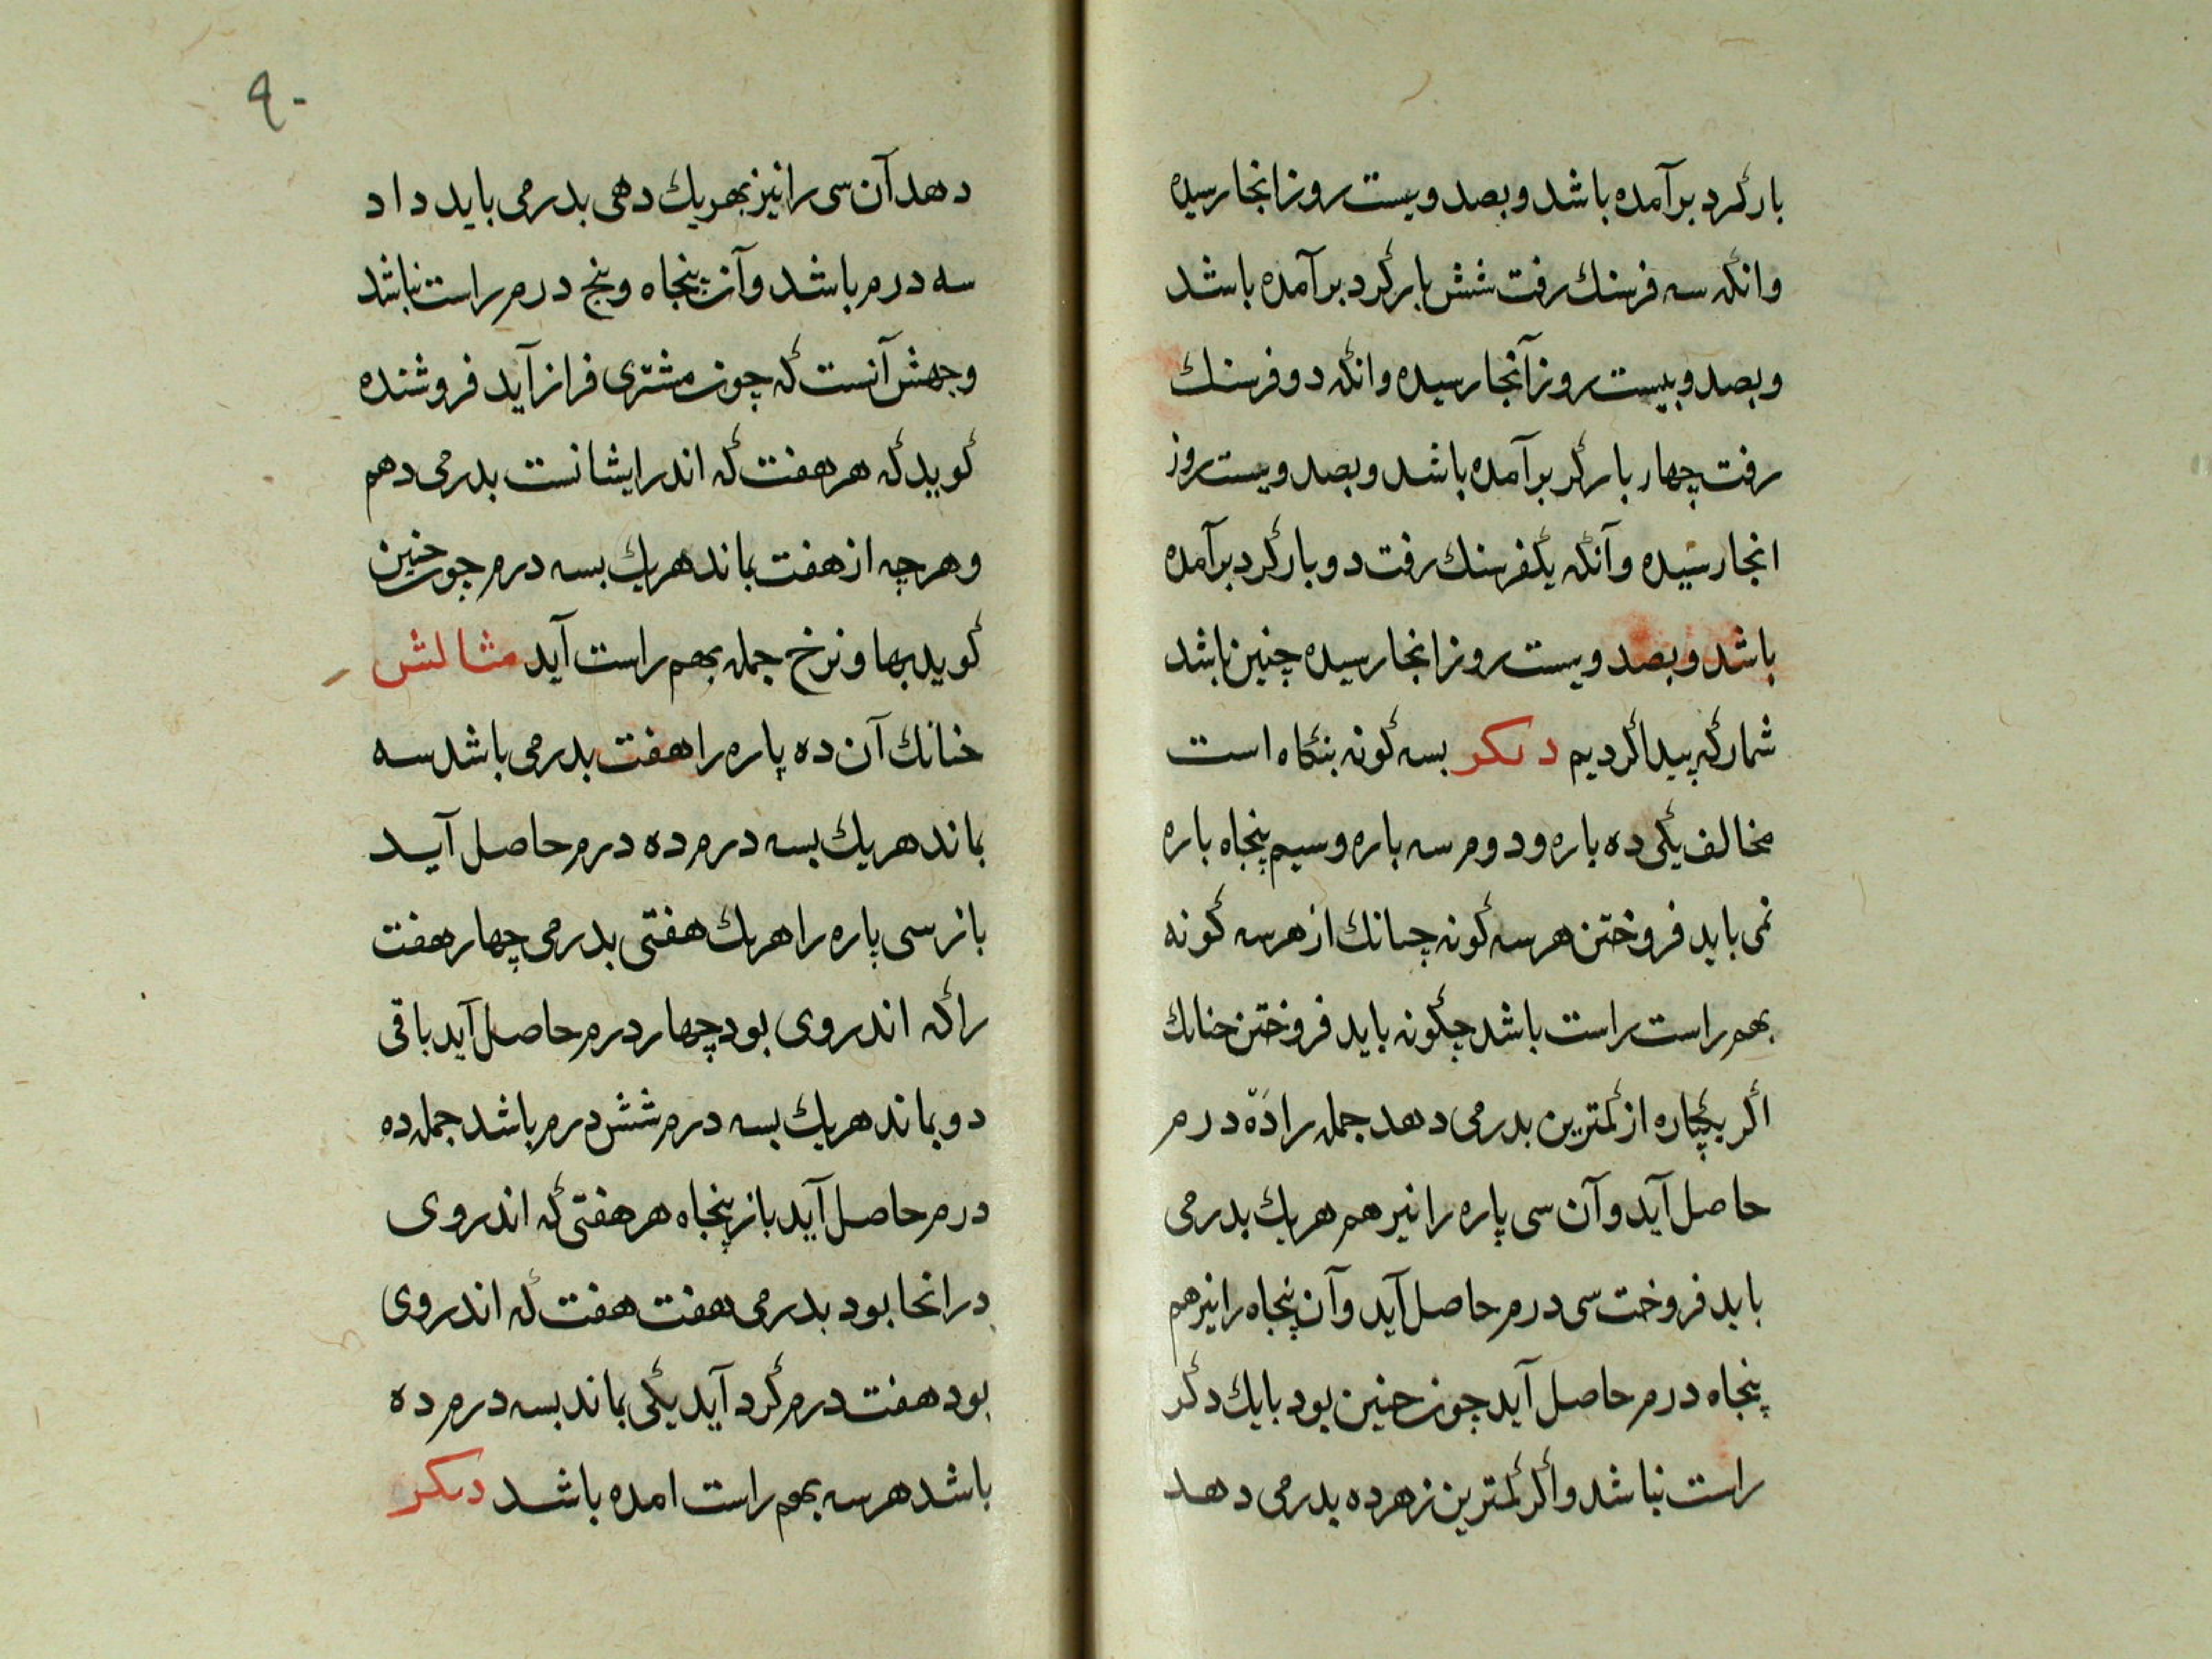 بارگرد برآمده باشد و بصد و بیست روز انجا رسیده
وانکه سه فرسنك رفت شش بار گرد برآمده باشد
و بصد و بیست روز آنجا رسیده وانکه دو فرسنك
رفت چهار بار گر برآمده باشد و بصد و بیست روز
انجا رسیده و آنکه یکفرسنك رفت دو بار گرد برآمده
باشد و بصد و بیست روز انجا رسیده چنین باشد
شمار که پیدا کردیم دیکر بسه گونه بنگاه است
مخالف یکی ده باره و دوم سه باره و سیم پنجاه باره
نمی باید فروختن هر سه گونه چنانك از هر سه گونه
بهم راست راست باشد چگونه باید فروختن چنانك
اگر یکپاره از کمترین بدرمی دهد جمله را ده درم
حاصل آید و آن سی پاره را نیز هم هر یك بدرمی
باید فروخت سی درم حاصل آید و آن پنجاه را نیز هم
پنجاه درم حاصل آید چون چنین بود بایك دگر
راست نباشد و اگر کمترین زهر ده بدرمی دهد
۹۰
دهد آن سی را نیز بهریك دهی بدرمی باید داد
سه درم باشد و آن پنجاه و پنج درم راست نباشد
وجهش آنست که چون مشتری فراز آید فروشنده
گوید که هر هفت که اندر ایشانست بدرمی دهم
و هرچه از هفت بماند هریك بسه درم چون چنین
گوید بها و نرخ جمله بهم راست آید مثالش
چنانك آن ده پاره را هفت بدرمی باشد سه
بماند هریك بسه درم ده درم حاصل آید
باز سی پاره را هریك هفتی بدرمی چهار هفت
را که اندروی بود چهار درم حاصل آید باقی
دو بماند هریك بسه درم شش درم باشد جمله ده
درم حاصل آید باز پنجاه هر هفتی که اندروی
در انجا بود بدرمی هفت هفت که اندروی
بود هفت درم گرد آید یکی بماند بسه درم ده
باشد هر سه بهم راست امده باشد دیکر